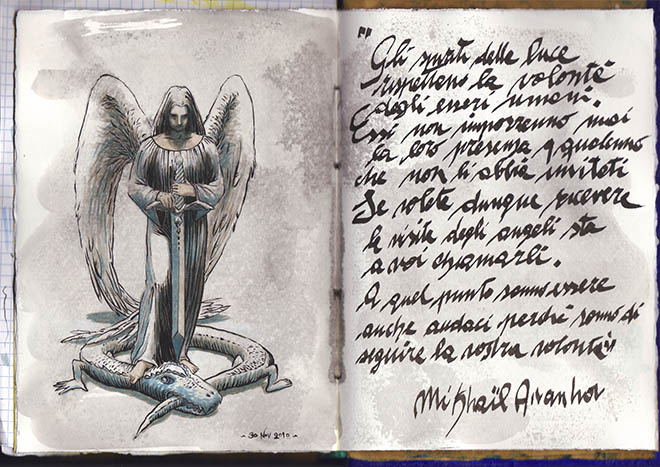 ~ 30 Nov 2010 ~
"Gli spiriti della luce
rispettano la volontà
degli esseri umani.
Essi non imporranno mai
la loro presenza a qualcuno
che non li abbia invitati
Se volete dunque ricevere
la visita degli angeli sta
a voi chiamarli.
A quel punto sanno essere
anche audaci perché sanno di
seguire la vostra volontà"
Mikhaël Aïvanhov